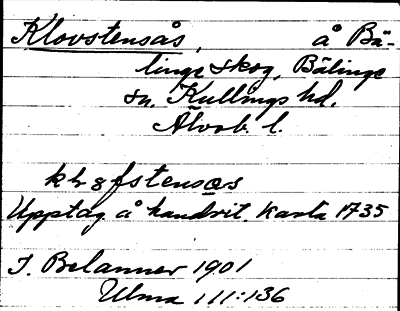 Klovstensås, å Bä-
linge skog, Bälinge
sn. Kullings hd.
Älvsb. l.
Upptag å handrit. Karta 1735
J. Belanner 1901
Ulma 111:136